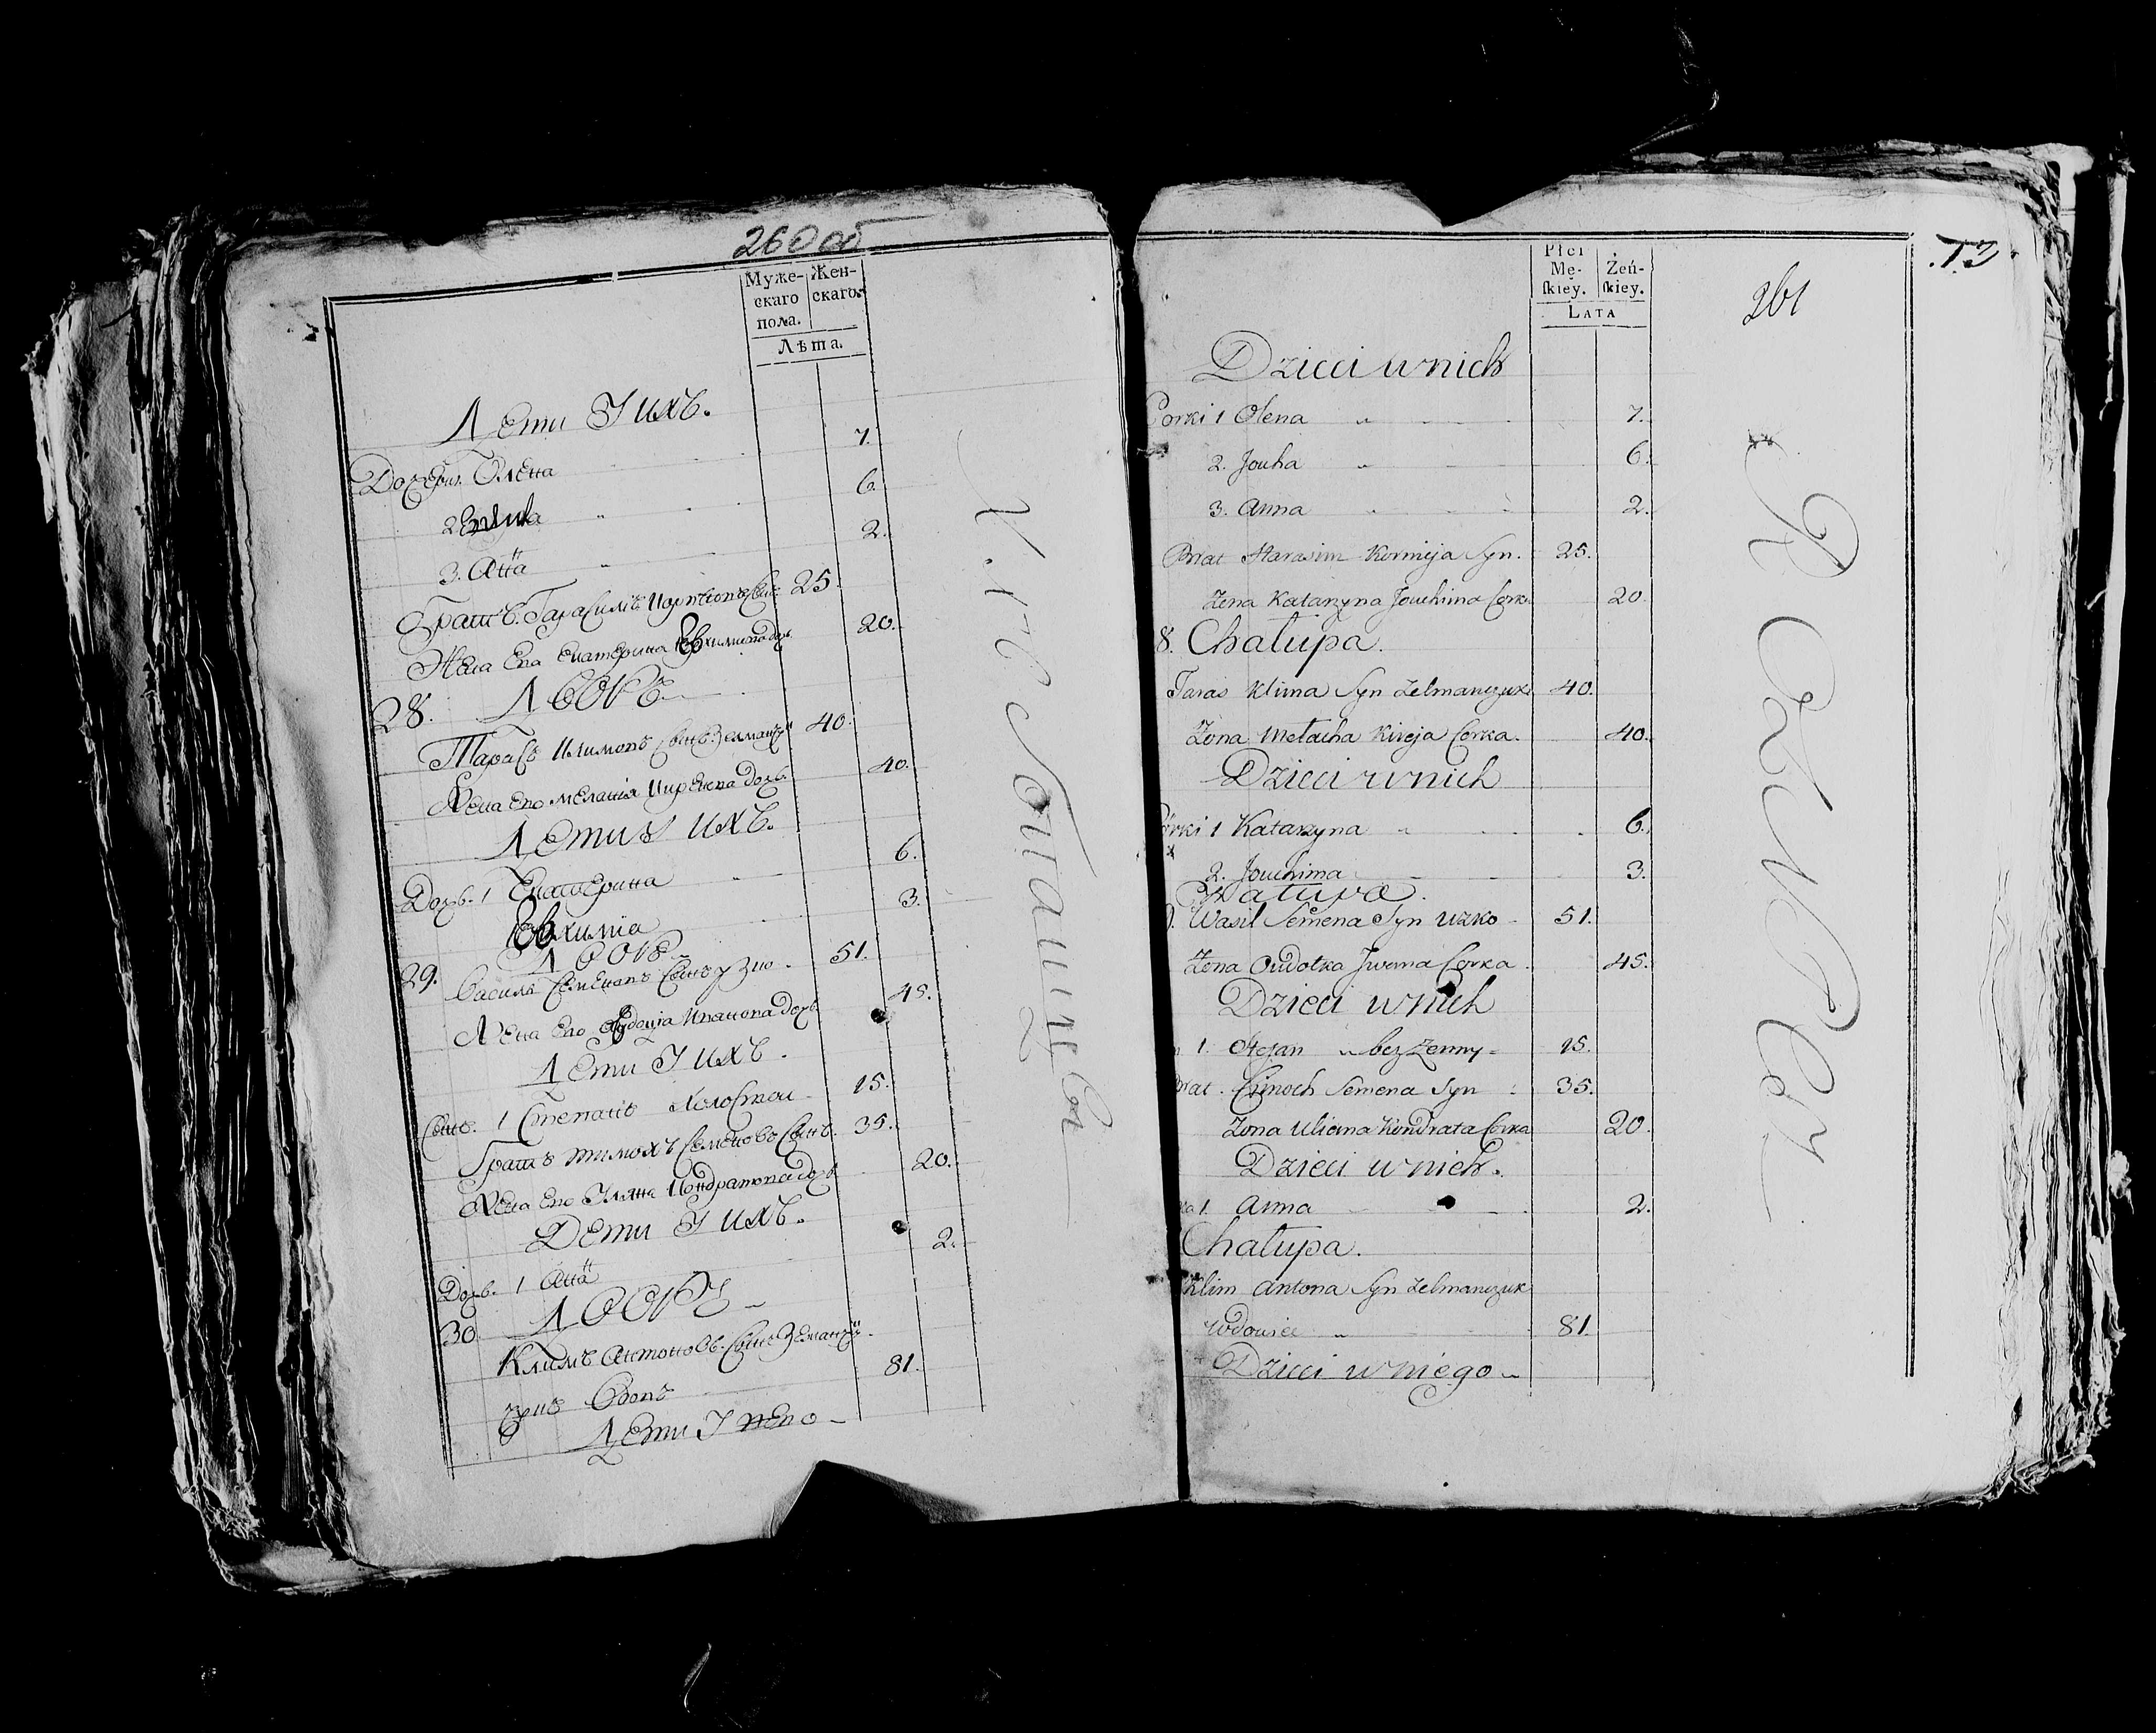 260 об
Муже-
скаго
пола.
Жен-
скаго.
Лѣта.
Дети У ихъ.
Дочери. Олена 7.
2 6.
3. Анна 2.
Братъ. Гарасимъ Корнеовъ Сынъ 25.
Жена Ева Екатерина Евхимова дочь 20.
28. Дворъ.
Тарасъ Климовъ Сынъ Зелманчу 40.
Жена Его мелания Кирѣева дочь 40.
Дети У ихъ.
Дочь. 1 Екатерина 6.
Евхимiа 3.
29. Дворъ.
Василь Семеновъ Сынъ Узко 51.
Жена Его Авдоцiа Иванова дочь 45.
Дети У ихъ.
Сынъ. 1 Степанъ Холостои 15.
Братъ тимохъ Семеновъ Сынъ. 35.
Жена Его Уляна Кондратова дочь 20.
Дети У ихъ.
Дочь. 1 Анна 2.
30. Дворъ
Климъ Антоновъ. Сынъ Земанчу-
чукъ Вдовъ 81.
Дети У него
13.
261
Płci
Mę-
ſkiey.
Żeń-
ſkiey.
Lata
Dzieci u nich
Corki 1 Olena 7.
2. Jouha 6.
3. Anna 2.
Brat Harasim Kornieja Syn. 25.
Zena Katarzyna Jouchima Corka 20.
8. Chałupa.
Taras Klima Syn Zelmanczuk 40.
Zona Mełacha Kireja Corka. 40.
Dzieci u nich
órki 1 Katarzyna 6.
2. Jouchima 3.
Chałupa.
Wasil Semena Syn Uzko 51.
Zona Oudotka Iwana Corka. 45.
Dzieci u nich
1. Stefan bez Zenny 15.
Brat. Cimoch Semena Syn 35.
Zona Uliana Kondrata Corka 20.
Dzieci u nich.
ka 1. Anna 2.
Chałupa.
Klim Antona Syn Zelmanczuk
Wdowiec 81.
Dzieci u niego